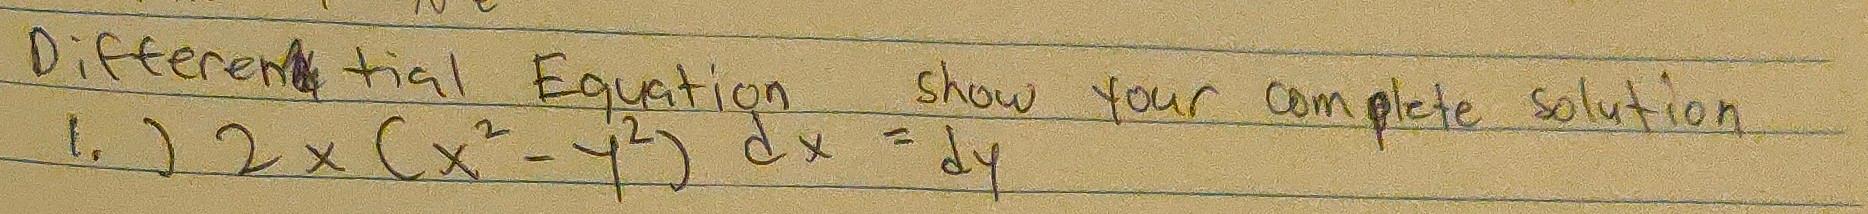 Differential Equation show your complete solution
1.) 2x(x²-y²) dx = dy